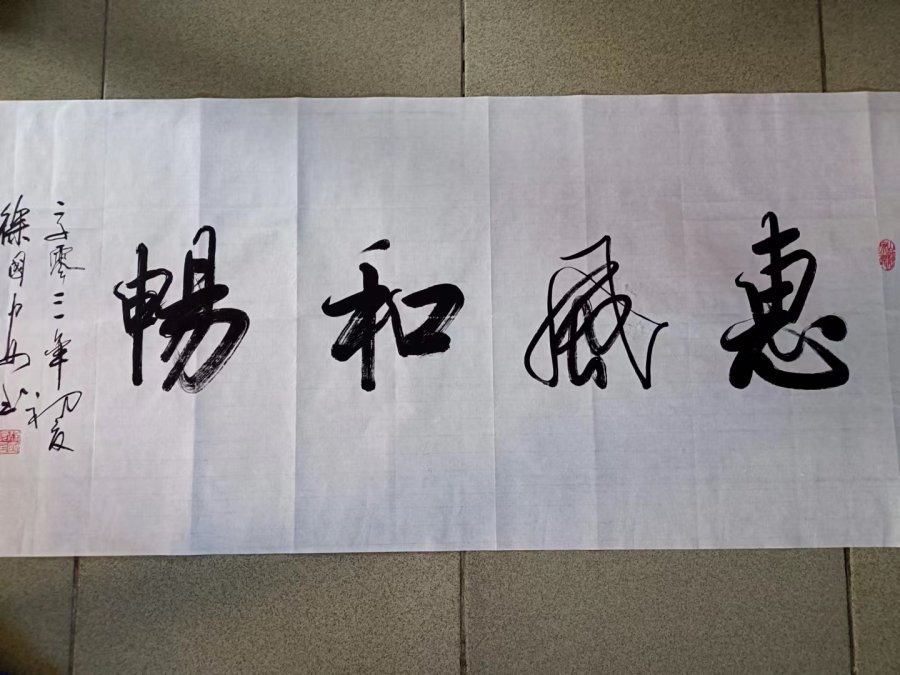 惠風和暢
二零零三年初夏
徐國
书